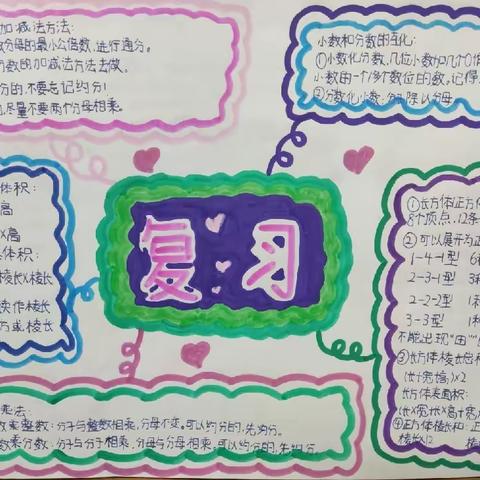 加减法方法:
分母的最小公倍数,进行通分。
分数的加减法方法去做。
分的,不要忘记约分!
,尽量不要两个分母相乘。
小数和分数的互化:
①小数化分数,几位小数加几个0作
小数的一个多个数位的数,记得
②分数化小数:分子除以分母
体积:
高
x高
体积:
棱长x棱长
读作棱长
方或棱长
复习
①长方体正方体
8个顶点,12条
②可以展开为正
1-4-1型 6种
2-3-1型 3种
2-2-2型 1种
3-3型 1种
不能出现"田"
③长方体棱长总和
(长+宽+高)x2
长方体表面积:
(长x宽+长x高+宽x高
④正方体棱长和: 正
棱长x12 棱长
乘法:
数乘整数:分子与整数相乘,分母不变,可以约分的,先约分。
数乘分数:分子与分子相乘,分母与分母相乘,可以约分的,先约分。